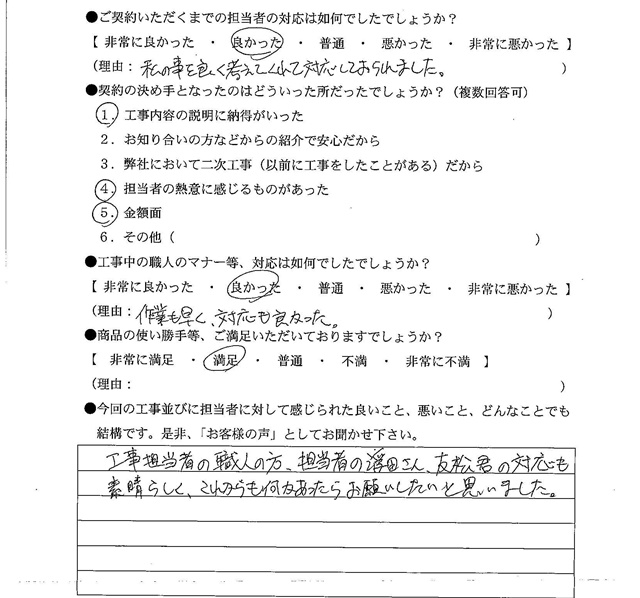 ●ご契約いただくまでの担当者の対応は如何でしたでしょうか？
【 非常に良かった ・ 良かった ・ 普通 ・ 悪かった ・ 非常に悪かった 】
（理由：私の事を良く考えてくれて対応しておられました。 ）
●契約の決め手となったのはどういった所だったでしょうか？（複数回答可）
1．工事内容の説明に納得がいった
2．お知り合いの方などからの紹介で安心だから
3．弊社において二次工事（以前に工事をしたことがある）だから
4．担当者の熱意に感じるものがあった
5．金額面
6．その他（ ）
●工事中の職人のマナー等、対応は如何でしたでしょうか？
【 非常に良かった ・ 良かった ・ 普通 ・ 悪かった ・ 非常に悪かった 】
（理由：作業も早く、対応も良かった。 ）
●商品の使い勝手等、ご満足いただいておりますでしょうか？
【 非常に満足 ・ 満足 ・ 普通 ・ 不満 ・ 非常に不満 】
（理由： ）
●今回の工事並びに担当者に対して感じられた良いこと、悪いこと、どんなことでも
結構です。是非、「お客様の声」としてお聞かせ下さい。
工事担当者の職人の方、担当者の澤田さん、友松君の対応も
素晴らしく、これからも何かあったらお願いしたいと思いました。